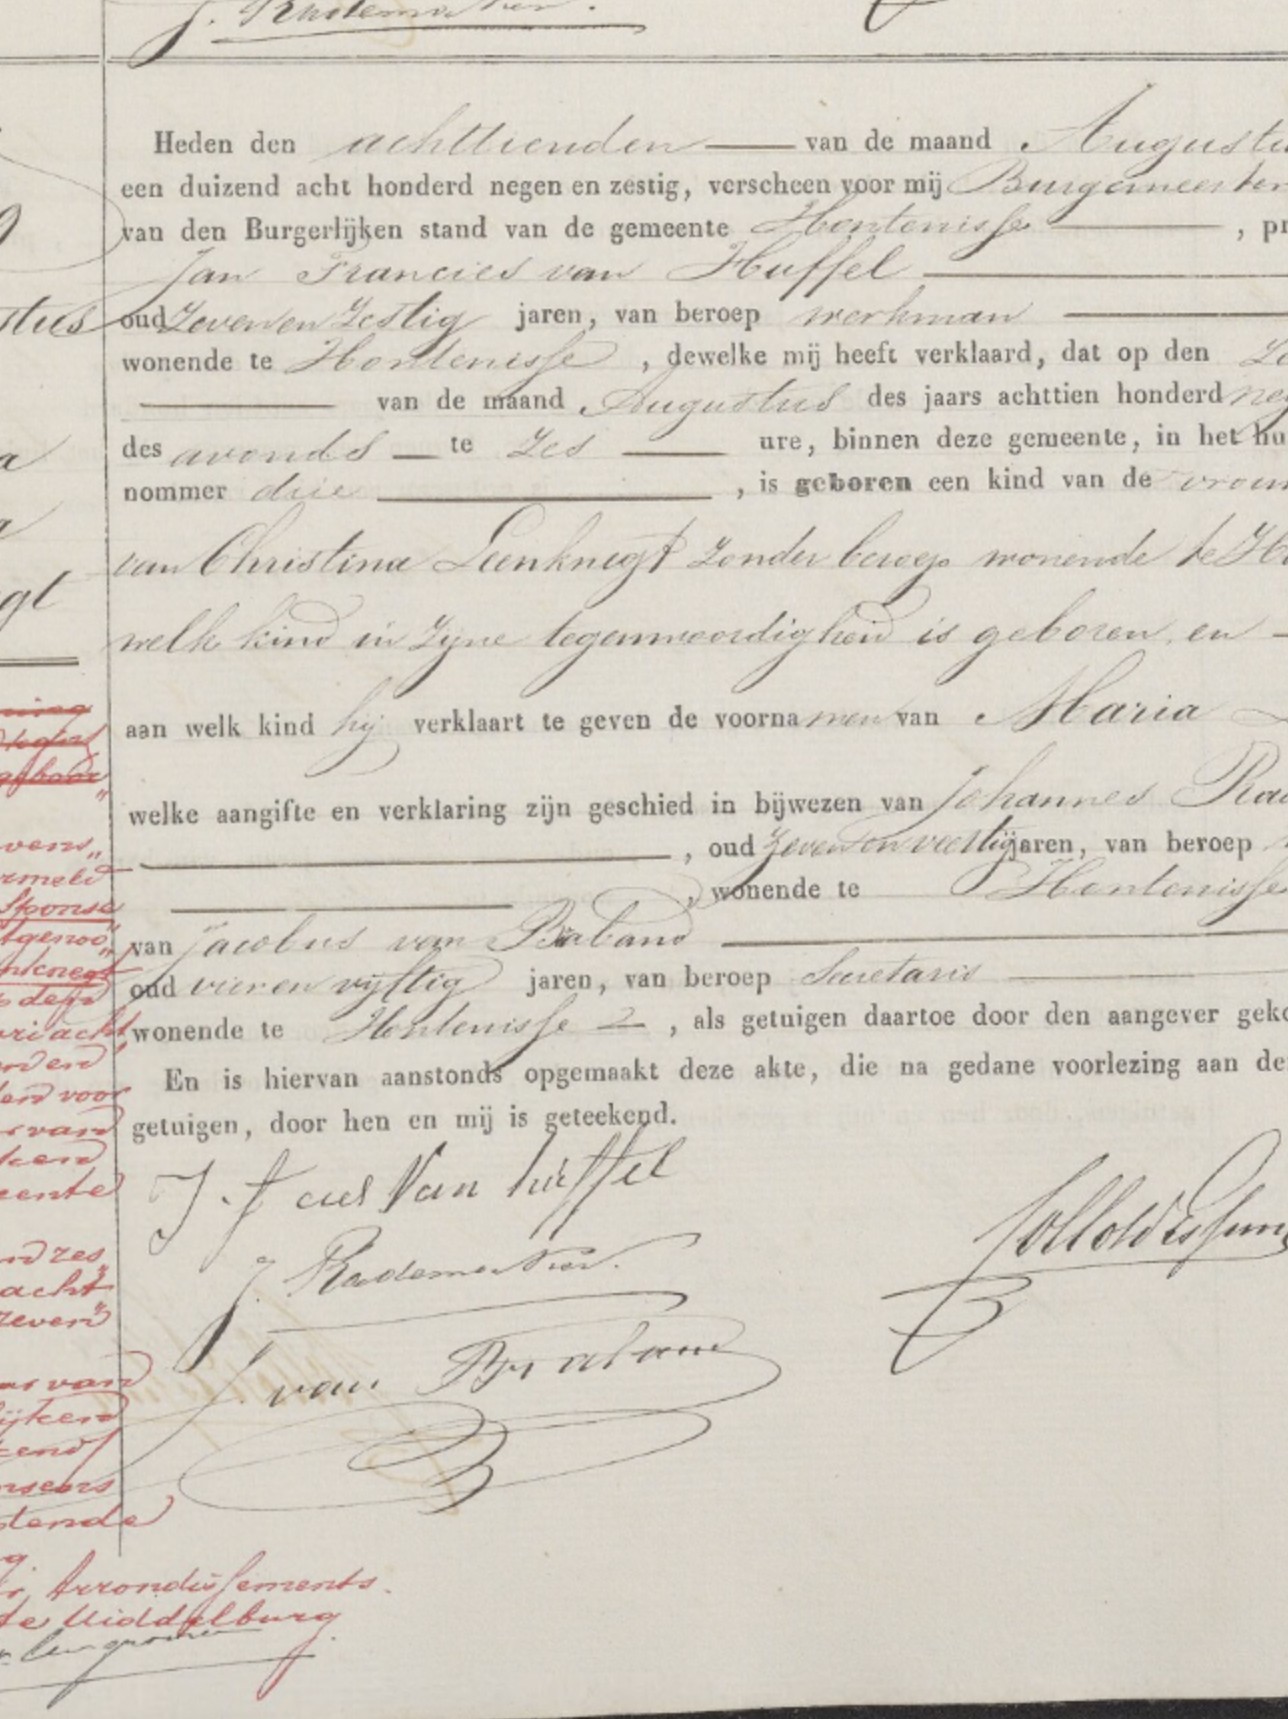 J. Rademaker.
Heden den achttienden van de maand Augustu
een duizend acht honderd negen en zestig, verscheen voor mij Burgemeester
van den Burgerlijken stand van de gemeente Hontenisse , pr
Jan Francies van Huffel
stus
oud Zeven en Zestig jaren, van beroep werkman
wonende te Hontenisse , dewelke mij heeft verklaard, dat op den Ze
van de maand Augustus des jaars achttien honderd neg
des avonds te Zes ure, binnen deze gemeente, in het hu
a
nommer drie , is geboren een kind van de vrou
a
van Christina Leenknegt Zonder beroep wonende te Ho
gt
welk kind in Zijne tegenwoordigheid is geboren en
aan welk kind hij verklaart te geven de voornamen van Maria
welke aangifte en verklaring zijn geschied in bijwezen van Johannes Rad
, oud Zeven en veertig jaren, van beroep
, wonende te Hontenisse
van Jacobus van Braband
oud vier en vijftig jaren, van beroep Secretaris
wonende te Hontenisse 2 , als getuigen daartoe door den aangever geko
En is hiervan aanstonds opgemaakt deze akte, die na gedane voorlezing aan de
getuigen, door hen en mij is geteekend.
vens
rmeld
Sponse
tgenoo
nknegt
deze
acht
en voor
van
ken
eente
zes
acht
zeven
van
ijken
kend
stende
J. F cies Van huffel
J. Rademaker.
J van Braband
Arrondissements
te Middelburg